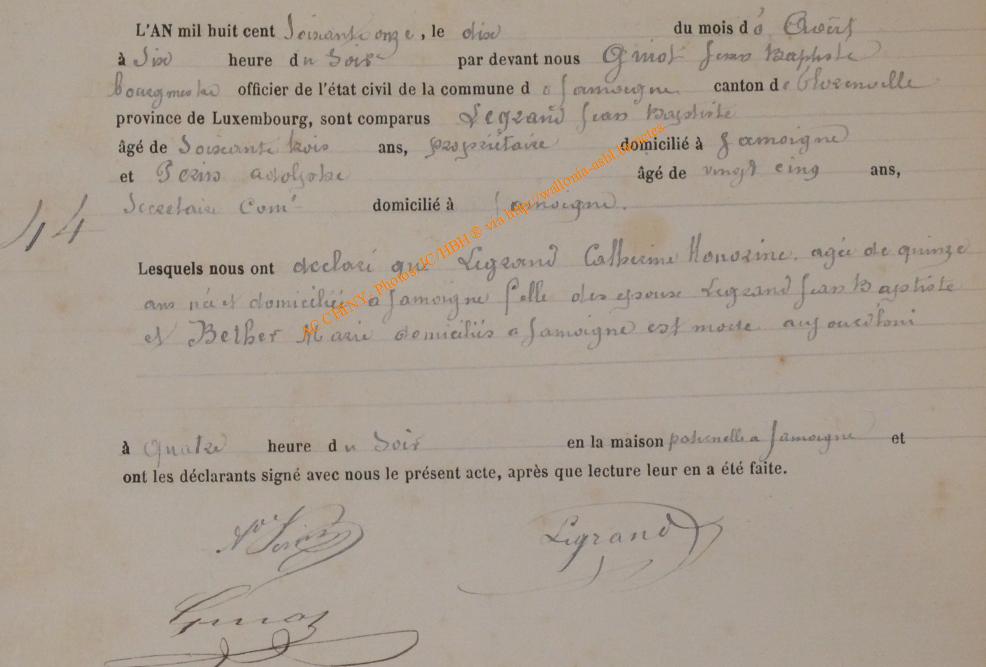 L'AN mil huit cent Soixante onze, le dix du mois d'Août
à Six heure du Soir par devant nous Ginot Jean Baptiste
bourgmestre officier de l'état civil de la commune de Jamoigne canton de Florenville
province de Luxembourg, sont comparus Legrand Jean Baptiste
âgé de Soixante trois ans, propriétaire domicilié à Jamoigne
et Perin Adolphe âgé de vingt cinq ans,
Secretaire Coml domicilié à Jamoigne.
44
Lesquels nous ont declaré que Legrand Catherine Honorine. agée de quinze
ans née et domiciliée a Jamoigne fille des epoux Legrand Jean Baptiste
et Bether Marie domiciliés a Jamoigne est morte aujourdhui
à quatre heure du Soir en la maison paternelle a Jamoigne et
ont les déclarants signé avec nous le présent acte, après que lecture leur en a été faite.
Perin Legrand
Ginot
AC CHINY, Photos JC/HBH © via http://wallonia-asbl.blogues